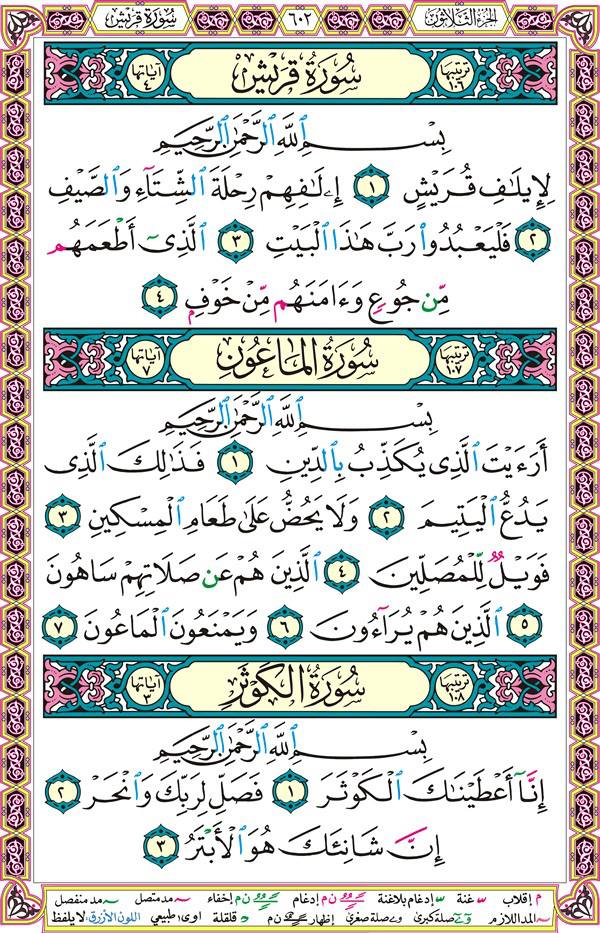 الجزء الثلاثون ٦٠٢ سورة قريش
ترتيبها ١٠٦ سُورَةُ قُرَيْشٍ آياتها ٤
بِسْمِ ٱللَّهِ ٱلرَّحْمَٰنِ ٱلرَّحِيمِ
لِإِيلَٰفِ قُرَيْشٍ ١ إِۦلَٰفِهِمْ رِحْلَةَ ٱلشِّتَآءِ وَٱلصَّيْفِ
٢ فَلْيَعْبُدُوا۟ رَبَّ هَٰذَا ٱلْبَيْتِ ٣ ٱلَّذِىٓ أَطْعَمَهُم
مِّن جُوعٍ وَءَامَنَهُم مِّنْ خَوْفٍۭ ٤
ترتيبها ١٠٧ سُورَةُ المَاعُونِ آياتها ٧
بِسْمِ ٱللَّهِ ٱلرَّحْمَٰنِ ٱلرَّحِيمِ
أَرَءَيْتَ ٱلَّذِى يُكَذِّبُ بِٱلدِّينِ ١ فَذَٰلِكَ ٱلَّذِى
يَدُعُّ ٱلْيَتِيمَ ٢ وَلَا يَحُضُّ عَلَىٰ طَعَامِ ٱلْمِسْكِينِ ٣
فَوَيْلٌ لِّلْمُصَلِّينَ ٤ ٱلَّذِينَ هُمْ عَن صَلَاتِهِمْ سَاهُونَ
٥ ٱلَّذِينَ هُمْ يُرَآءُونَ ٦ وَيَمْنَعُونَ ٱلْمَاعُونَ ٧
ترتيبها ١٠٨ سُورَةُ الكَوْثَرِ آياتها ٣
بِسْمِ ٱللَّهِ ٱلرَّحْمَٰنِ ٱلرَّحِيمِ
إِنَّآ أَعْطَيْنَٰكَ ٱلْكَوْثَرَ ١ فَصَلِّ لِرَبِّكَ وَٱنْحَرْ ٢
إِنَّ شَانِئَكَ هُوَ ٱلْأَبْتَرُ ٣
م إقلاب غنة إدغام بلاغنة ن م إدغام ن م إخفاء مد متصل مد منفصل
المد اللازم صلة كبرى صلة صغرى إظهار ن م قلقلة اوى: طبيعي اللون الأزرق: لا يلفظ